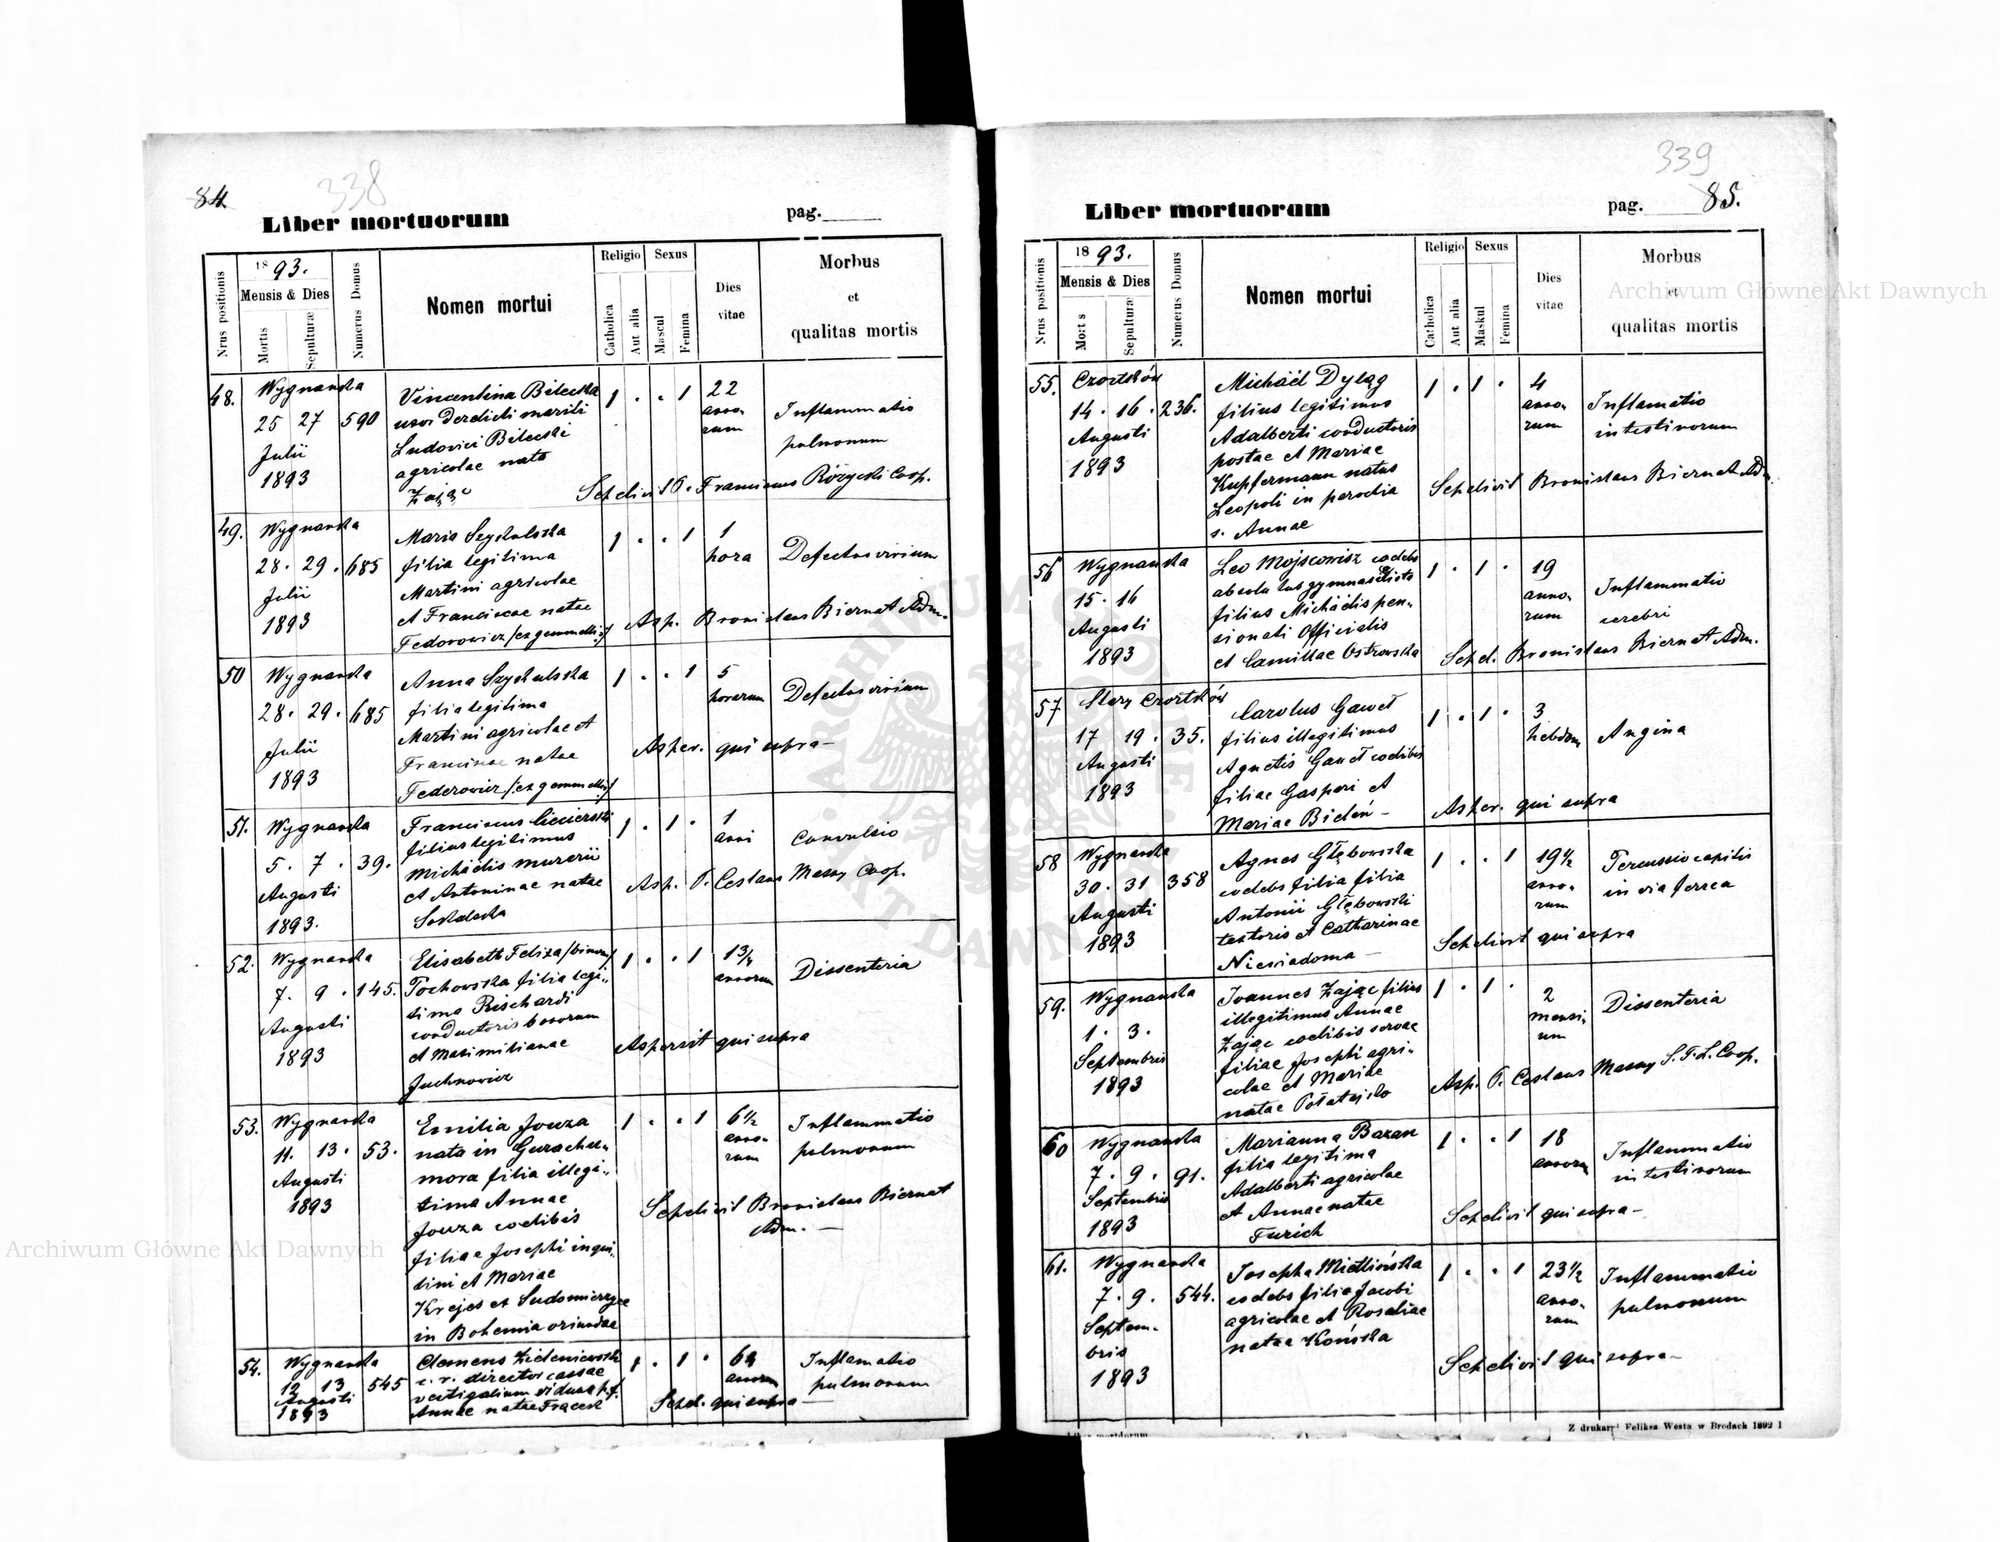 84
338
Liber mortuorum
pag.
Nrus positionis
1893.
Mensis & Dies
Mortis
Sepulturæ
Numerus Domus
Nomen mortui
Religio
Catholica
Aut alia
Sexus
Mascul
Femina
Dies
vitae
Morbus
et
qualitas mortis
48.
Wygnanka
25 27 590
Julii
1893
Vincentina Bilecka
uxor derelicti mariti
Ludovici Bilecki
agricolae nata
Zając
1 . . 1
22
anno-
rum
Inflammatio
pulmonum
Sepelivit P. Franciscus Różycki Coop.
49.
Wygnanka
28. 29. 685
Julii
1893
Maria Szydulska
filia legitima
Martini agricolae
et Franciscae natae
Fedorowicz /ex gemmellis/
1 . . 1
1
hora
Defectus virium
Asp. Bronislaus Biernat Adm.
50
Wygnanka
28. 29. 685
Julii
1893
Anna Szydulska
filia legitima
Martini agricolae et
Franciscae natae
Fedorowicz /ex gemmellis/
1 . . 1
5
horarum
Defectus virium
Asper. qui supra -
51.
Wygnanka
5. 7. 39.
Augusti
1893.
Franciscus Ciecierski
filius legitimus
Michaelis murarii
et Antoninae natae
Sokalska
1 . 1 .
1
anni
Convulsio
Asp. P. Ceslaus Coop.
52.
Wygnanka
7. 9. 145.
Augusti
1893
Elisabeth Feliza /binom/
Pochowska filia legi-
tima Rischardi
conductoris bonorum
et Maximilianae
Juchnowicz
1 . . 1
1 3/4
annorum
Dissenteria
Aspersit qui supra
53.
Wygnanka
11. 13. 53.
Augusti
1893
Emilia Jouza
nata in Gurachu-
mora filia illegi-
tima Annae
Jouza coelibis
filiae Josephi inqui-
lini et Mariae
Krejcs et
in Bohemia oriundae
1 . . 1
6 1/2
anno-
rum
Inflammatio
pulmonum
Sepelivit Bronislaus Biernat
Adm. -
54.
Wygnanka
12 13 545
Augusti
1893
Clemens Zieleniewski
c. r. director cassae
vectigalium
Annae natae
1 . 1 .
64
annorum
Inflamatio
pulmonum
Sepel. qui supra -
339
85.
Liber mortuorum
pag.
Nrus positionis
1893.
Mensis & Dies
Morts
Sepulturæ
Numerus Domus
Nomen mortui
Religio
Catholica
Aut alia
Sexus
Maskul
Femina
Dies
vitae
Morbus
et
qualitas mortis
55.
Czortków
14. 16. 236.
Augusti
1893
Michäel Dyląg
filius legitimus
Adalberti conductoris
postae et Mariae
Kupfermann natus
Leopoli in parochia
s. Annae
1 . 1 .
4
anno-
rum
Inflamatio
intestinorum
Sepelivit Bronislaus Biernat Adm.
56
Wygnanka
15. 16
Augusti
1893
Leo Mojscowisz coelebs
filius Michäelis pen-
sionati Officialis
et Camillae Ostrowska
1 . 1 .
19
anno-
rum
Inflammatio
cerebri
Sepel. Bronislaus Biernat Adm.
57
Stary Czortków
17 19. 35.
Augusti
1893
Carolus Gaweł
filius illegitimus
Agnetis Gaweł coelibis
filiae Gaspari et
Mariae Bideń -
1 . 1 .
3
hebdom
Angina
Asper. qui supra
58
Wygnanka
30. 31 358
Augusti
1893
Agnes Głębowska
coelebs filia filia
Antonii Głębowski
textoris et Catharinae
Niewiadoma -
1 . . 1
19 1/2
anno-
rum
Percussio capitis
in via ferrea
Sepelivit qui supra
59.
Wygnanka
1. 3.
Septembris
1893
Joannes Zając filius
illegitimus Annae
Zając coelibis servae
filiae Josephi agri-
colae et Mariae
natae
1 . 1 .
2
mensi-
um
Dissenteria
Asp. P. Ceslaus S. T. L. Coop.
60
Wygnanka
7. 9. 91.
Septembris
1893
Marianna Bazan
filia legitima
Adalberti agricolae
et Annae natae
Furich
1 . . 1
18
annorum
Inflammatio
intestinorum
Sepelivit qui supra -
61.
Wygnanka
7. 9. 544.
Septem-
bris
1893
Josepha Mietlińska
coelebs filia Jacobi
agricolae et Rosaliae
natae Końska
1 . . 1
23 1/2
anno-
rum
Inflammatio
pulmonum
Sepelivit qui supra -
Liber mortuorum
Z drukarni Feliksa Westa w Brodach 1892 1
Archiwum Główne Akt Dawnych
Archiwum Główne Akt Dawnych